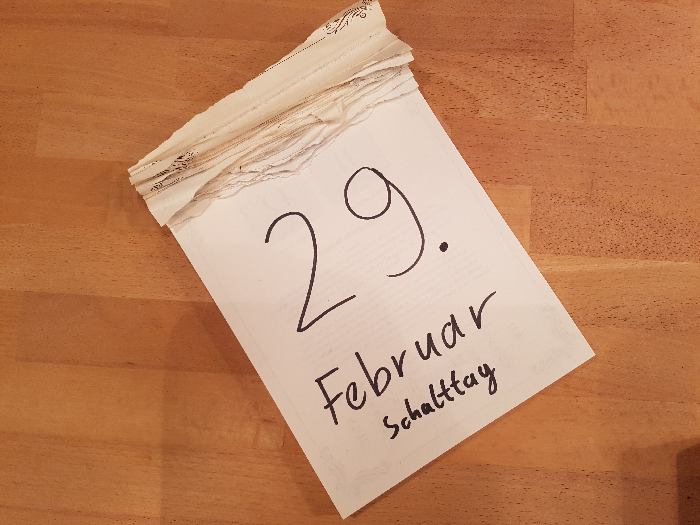 29.
Februar
Schalttag